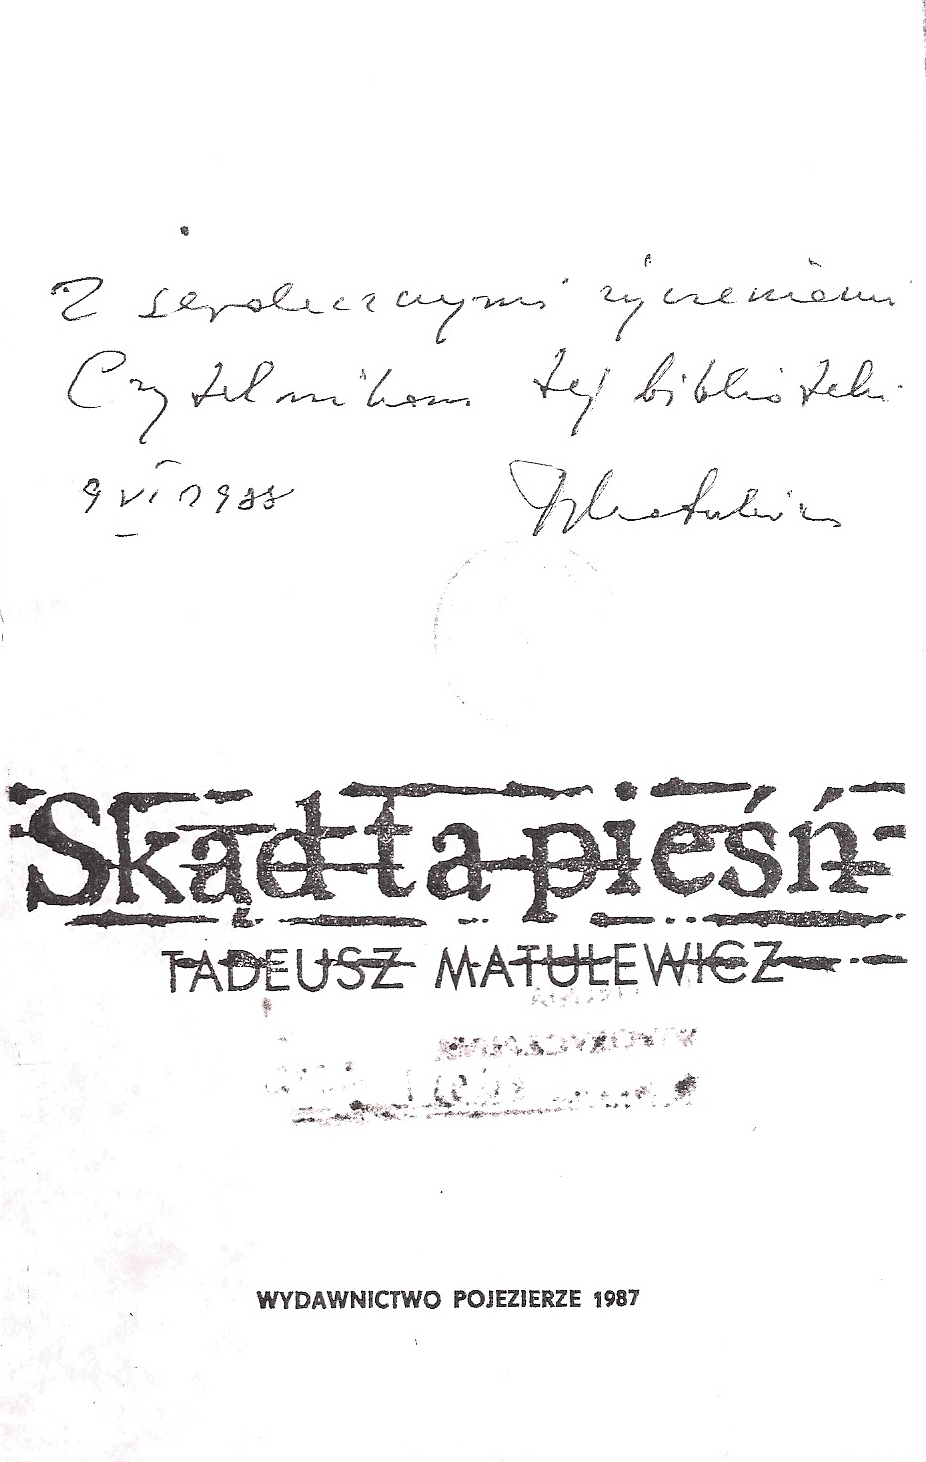 Z serdecznymi życzeniami
Czytelnikom tej biblioteki
9 VI 1988 TMatulewicz
Skąd ta pieśń
TADEUSZ MATULEWICZ
WYDAWNICTWO POJEZIERZE 1987